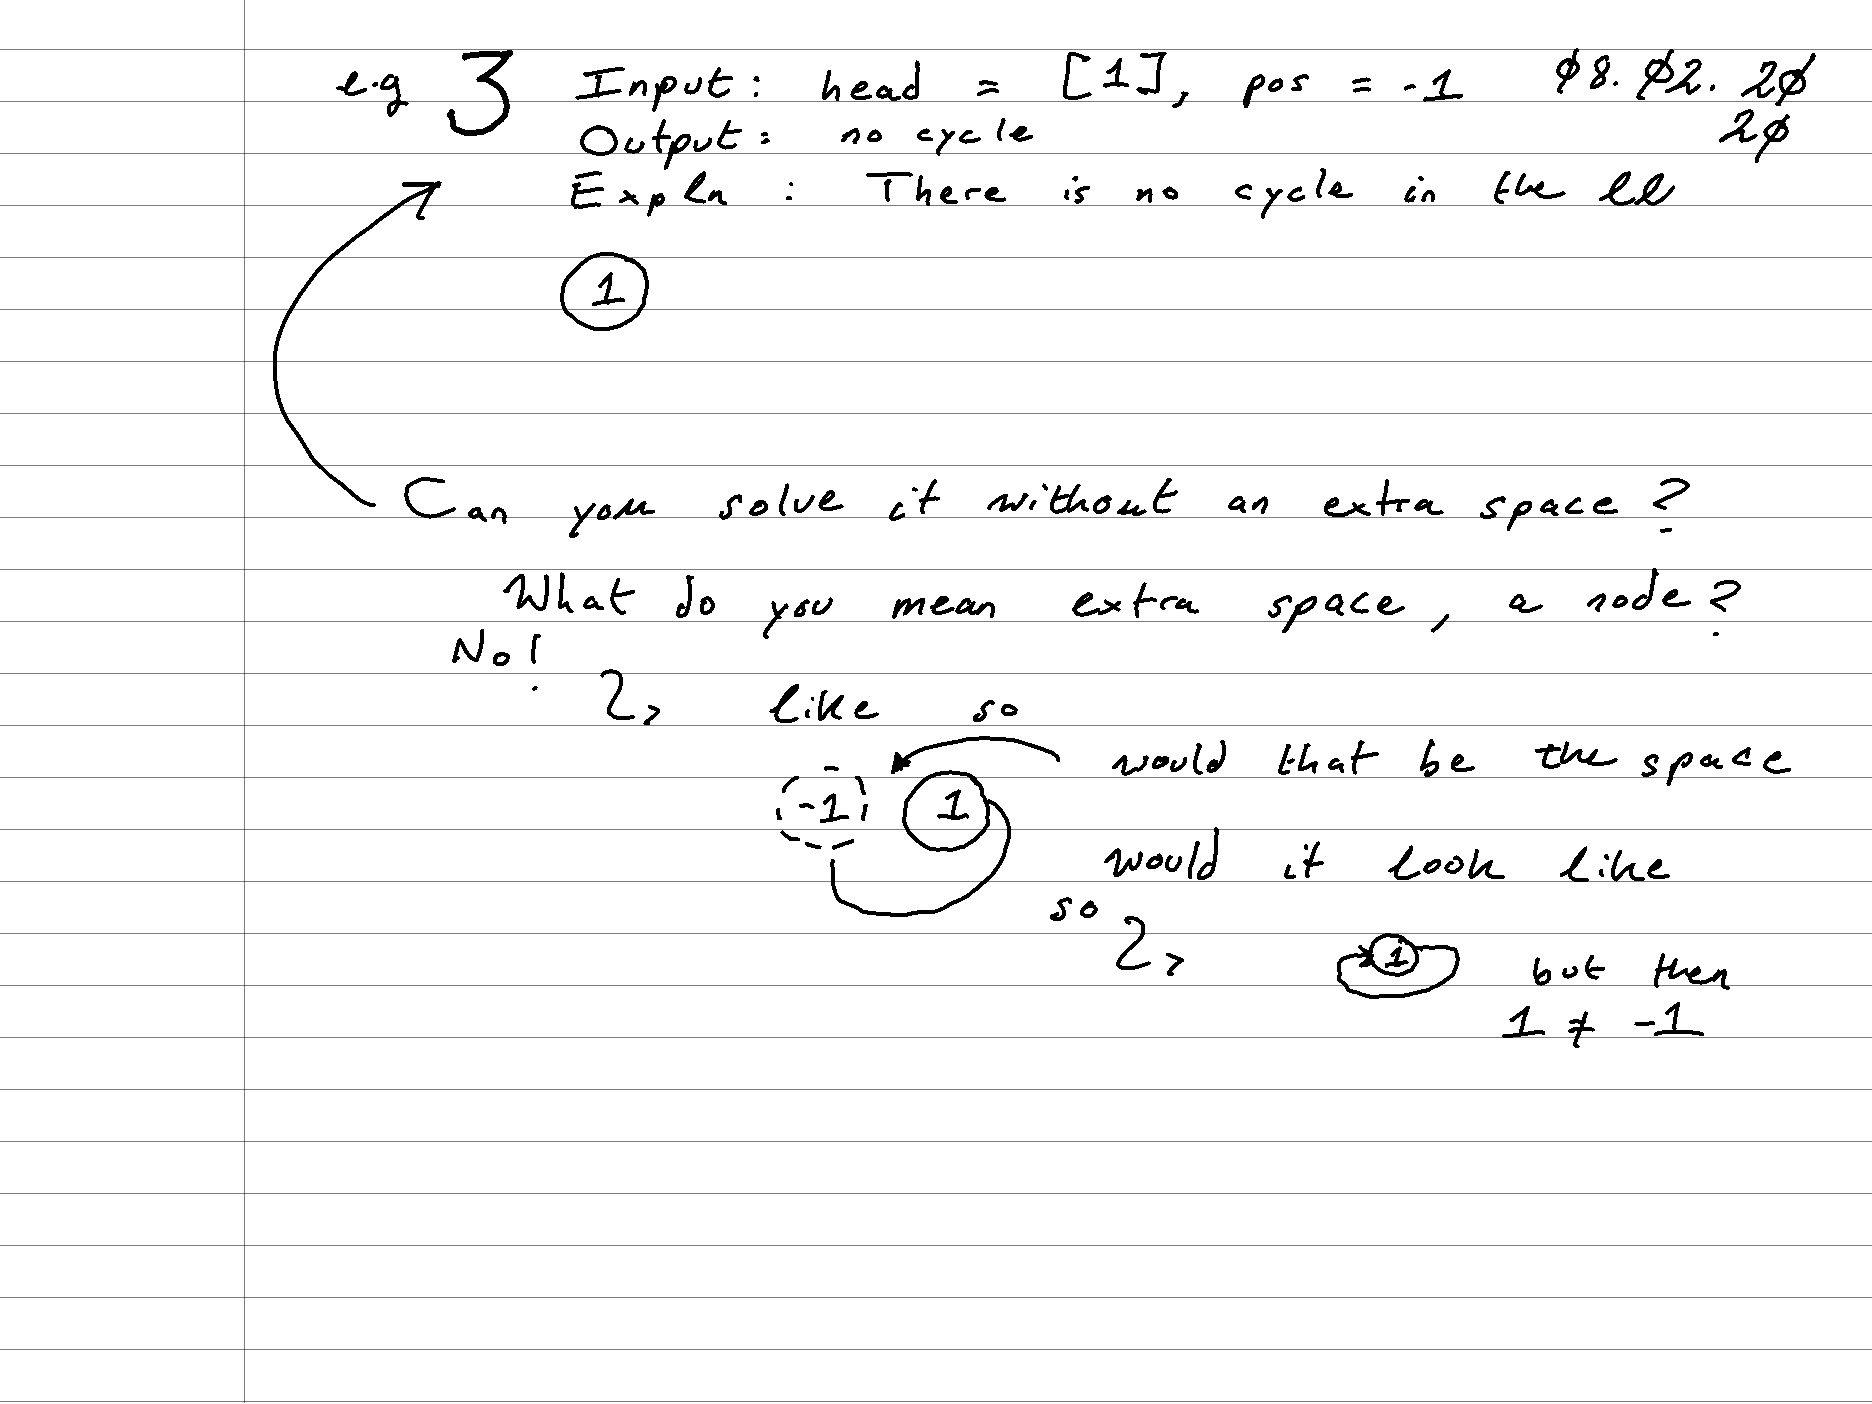 e.g 3 Input: head = [1], pos = -1 08.02.20
Output: no cycle 20
Expln : There is no cycle in the ll
1
Can you solve it without an extra space?
What do you mean extra space, a node?
No!
like so
would that be the space
-1 1
would it look like
so
1 but then
1 ≠ -1